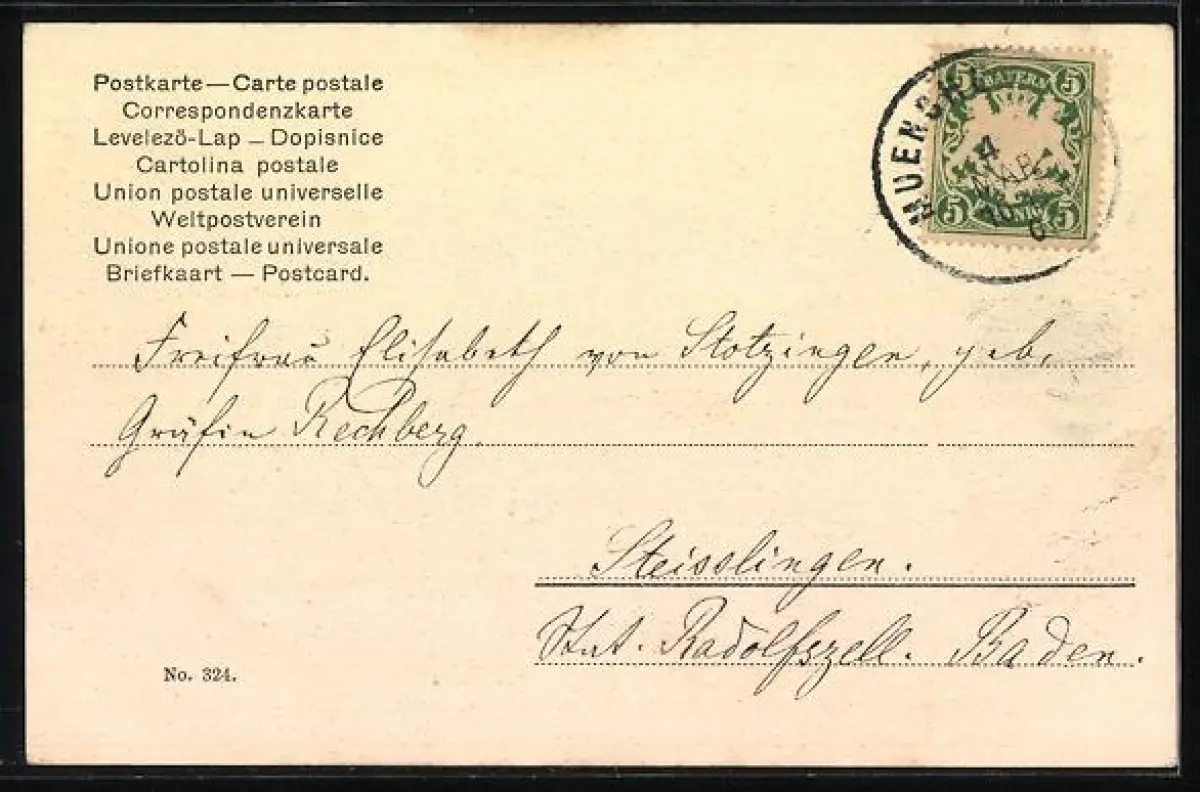 Postkarte — Carte postale
Correspondenzkarte
Levelező-Lap — Dopisnice
Cartolina postale
Union postale universelle
Weltpostverein
Unione postale universale
Briefkaart — Postcard.
5 BAYERN 5
MUENCH
4
MAR
5 5
Freifrau Elisabeth von Stotzingen, geb.
Gräfin Rechberg.
Steisslingen.
Stat. Radolfszell. Baden.
No. 324.